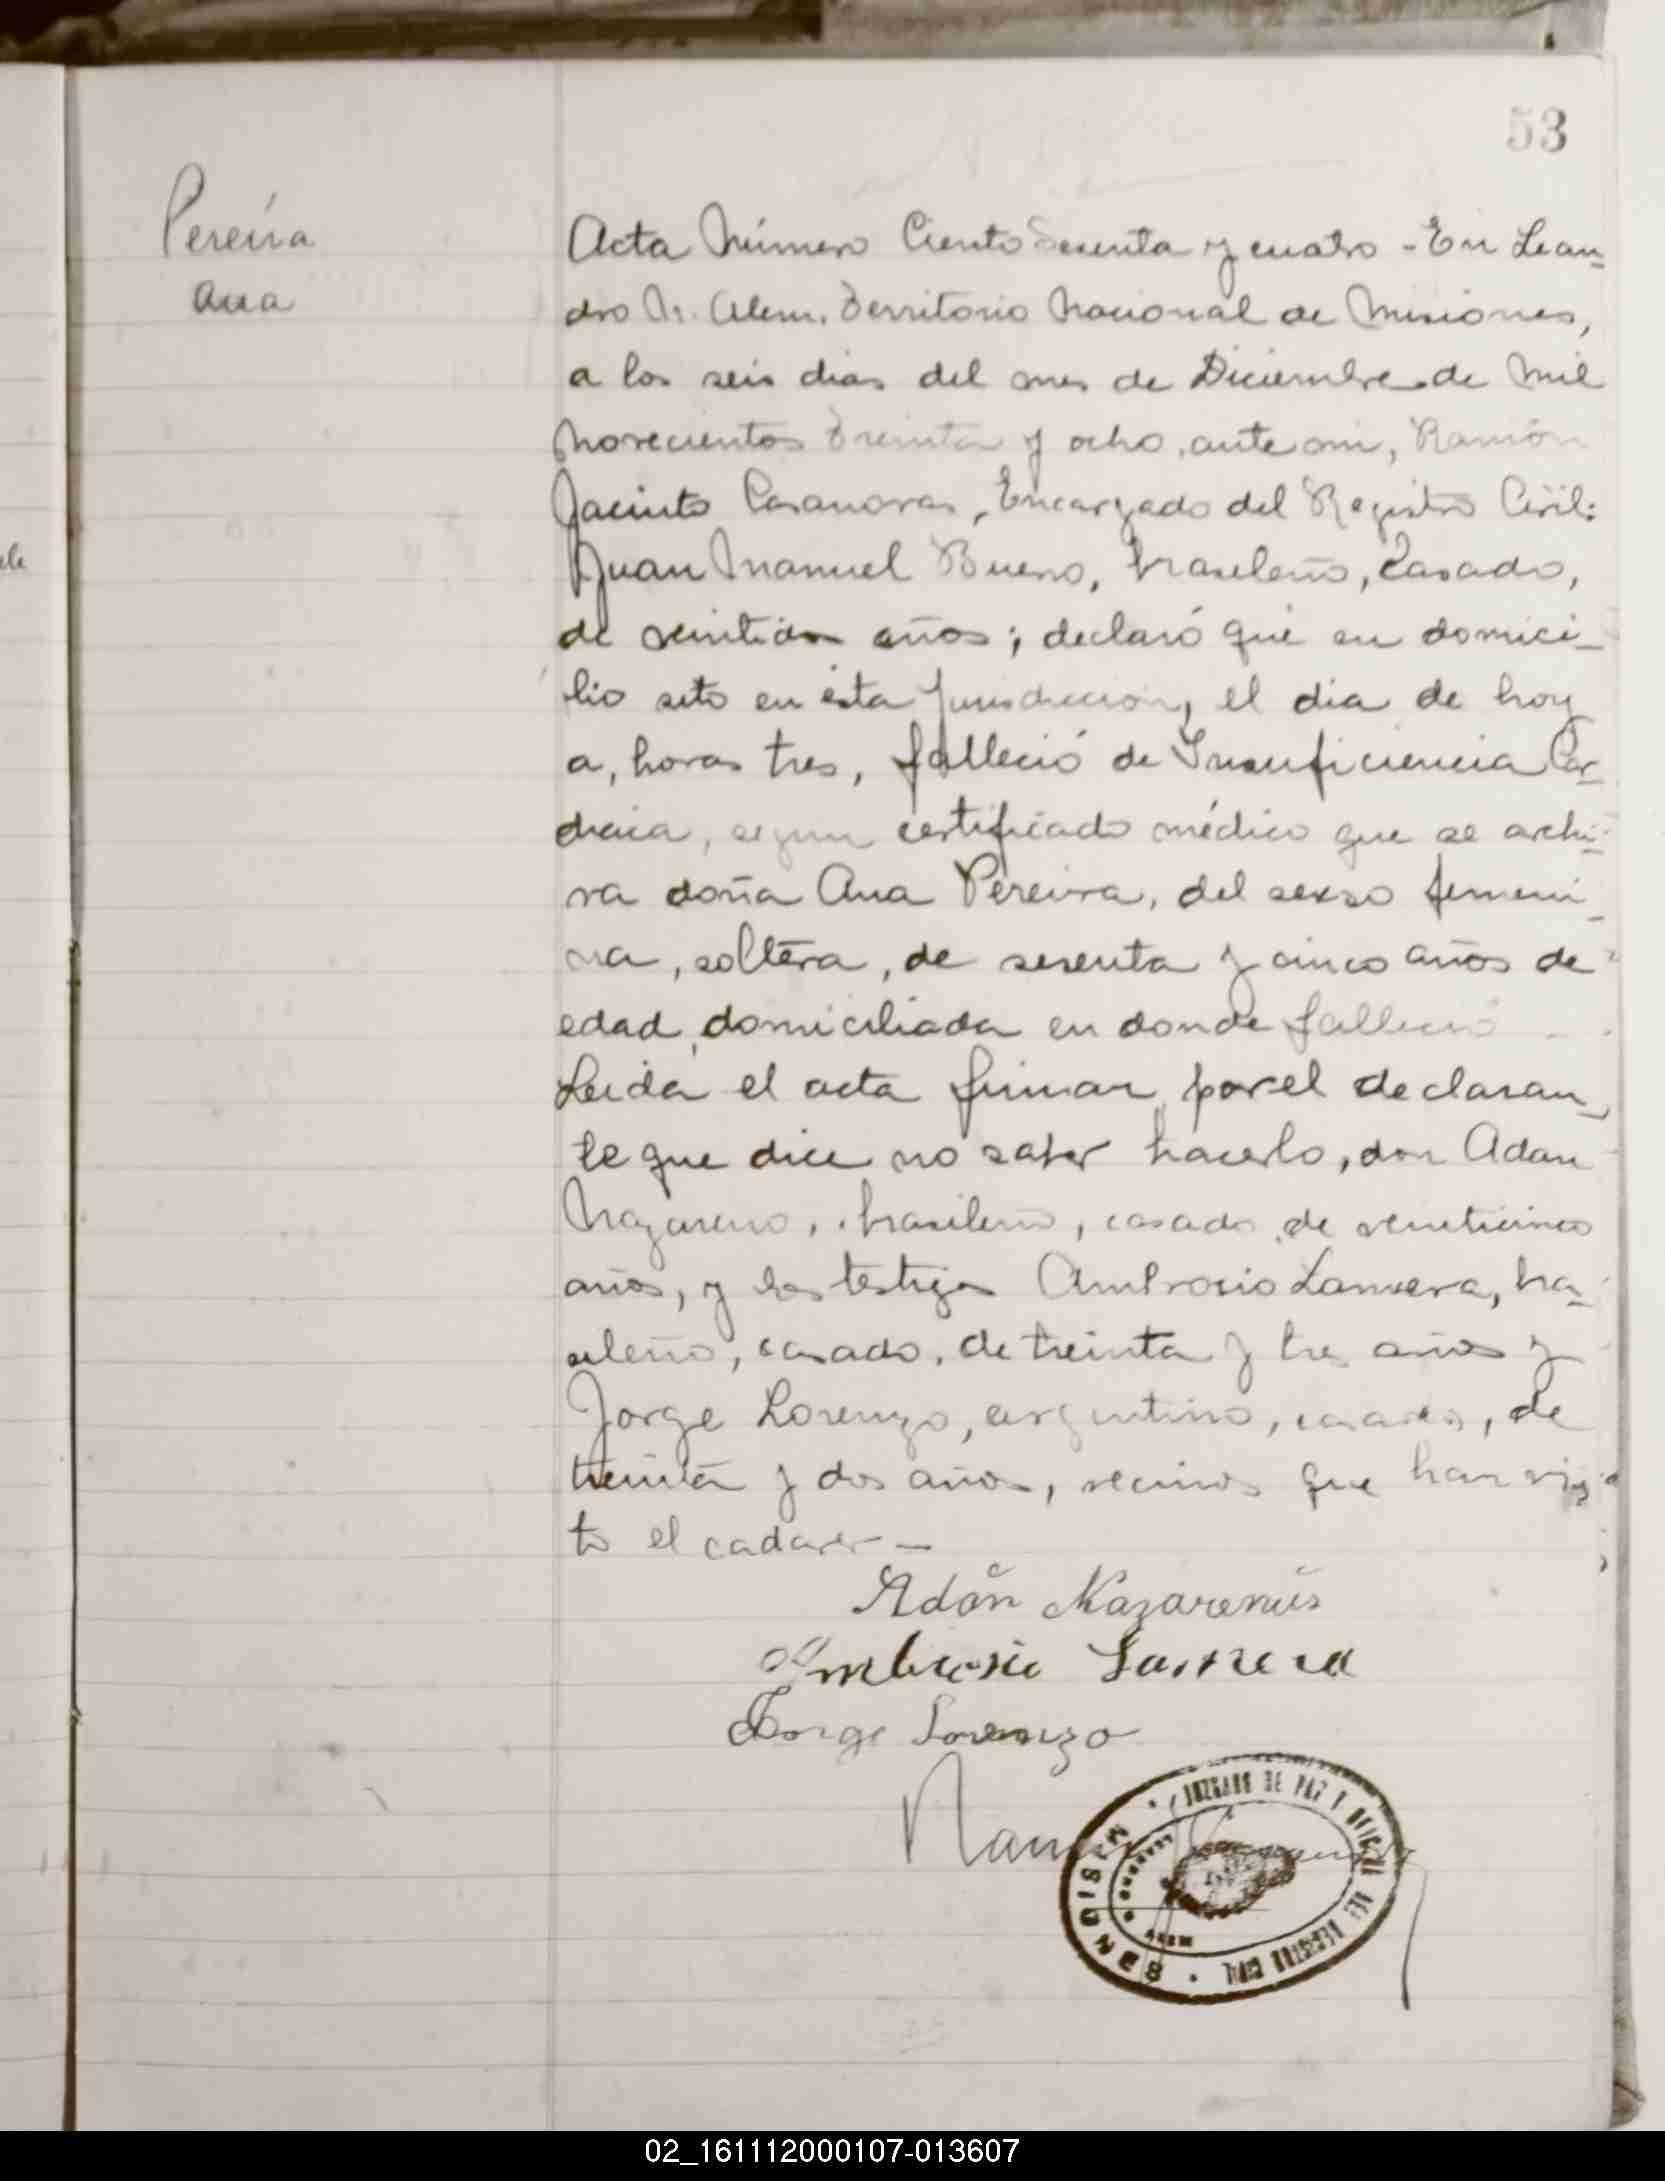 53
Pereira
Ana
Acta Número Ciento Sesenta y cuatro - En Lean-
dro N. Alem, Territorio Nacional de Misiones,
a los seis dias del mes de Diciembre de mil
novecientos treinta y ocho, ante mi, Ramón
Jacinto Casanovas, Encargado del Registro Civil:
Juan Manuel Bueno, brasileño, casado,
de veintidos años; declaró que en domici-
lio sito en ésta jurisdiccion, el dia de hoy
a, horas tres, falleció de Insuficiencia Car-
diaca, segun certificado médico que se archi-
va doña Ana Pereira, del sexso femeni-
na, soltera, de sesenta y cinco años de
edad, domiciliada en donde falleció
Leida el acta firman por el declaran-
te que dice no saber hacerlo, don Adan
Nazareno, brasileño, casado, de veinticinco
años, y los testigos Ambrosio Lamera, bra-
sileño, casado, de treinta y tres años y
Jorge Lorenzo, argentino, casado, de
treinta y dos años, vecinos que han vis-
to el cadaver -
Adán Nazarenus
Ambrosio
Jorge Lorenzo
JUZGADO DE PAZ Y OFICINA DEL REGISTRO CIVIL
MISIONES
02_161112000107-013607